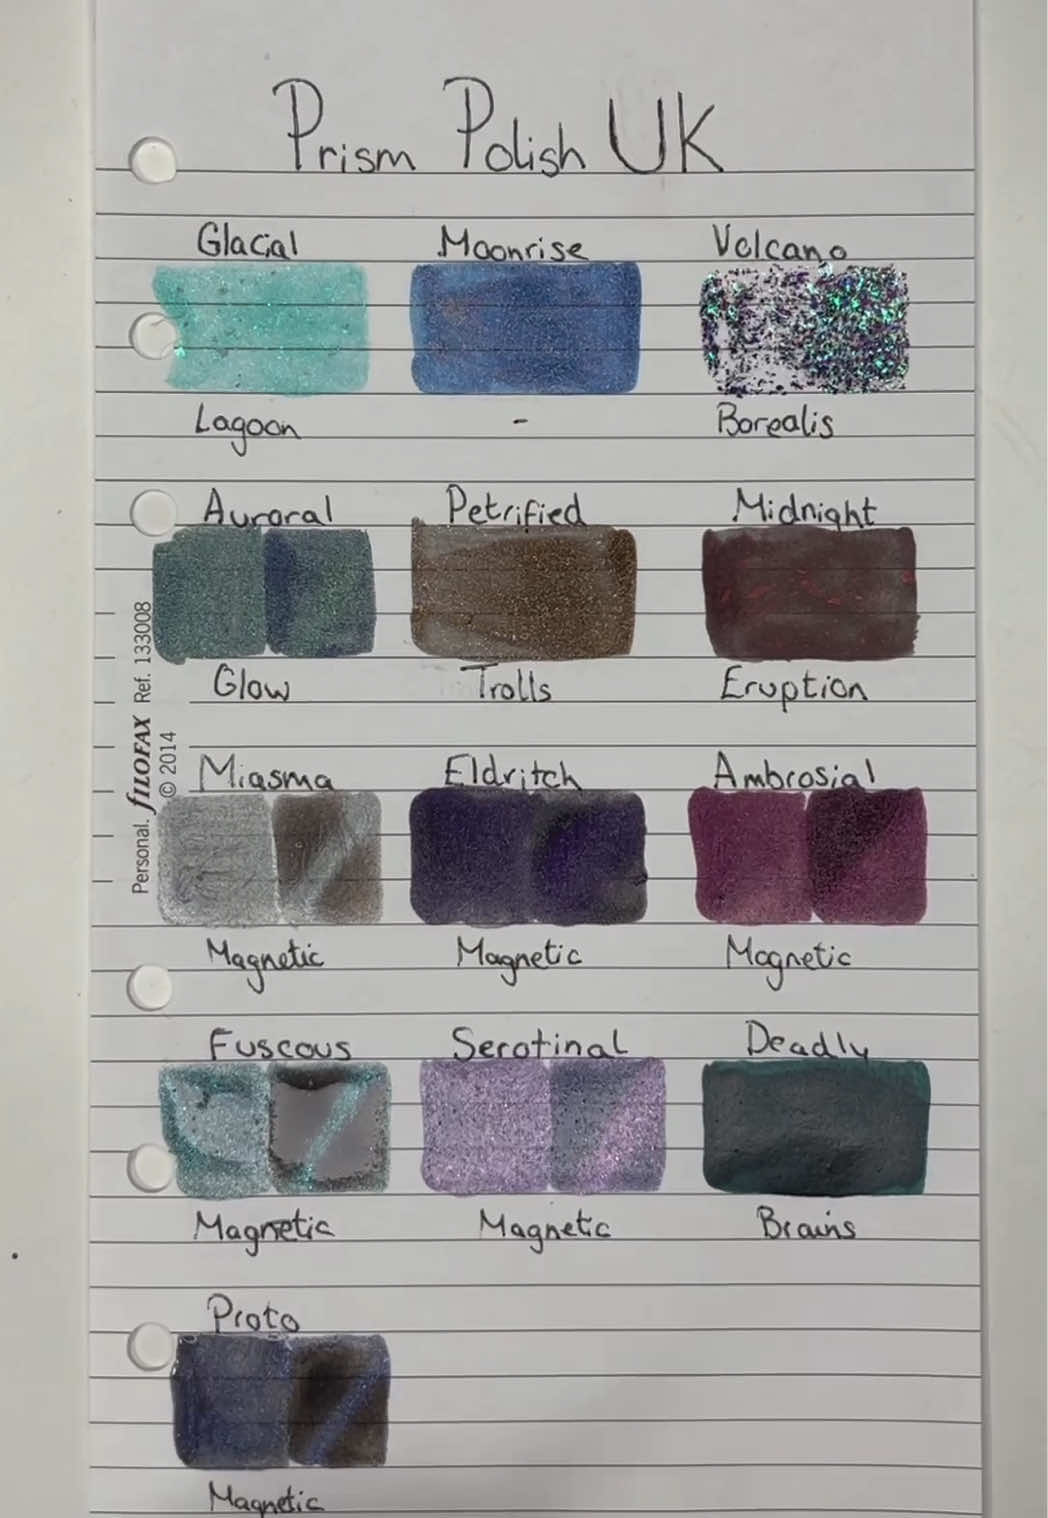 Prism Polish UK
Glacial Moonrise Volcano
Lagoon - Borealis
Auroral Petrified Midnight
Glow Trolls Eruption
Miasma Eldritch Ambrosial
Magnetic Magnetic Magnetic
Fuscous Serotinal Deadly
Magnetic Magnetic Brains
Proto
Magnetic
Personal. fILOFAX Ref. 133008
© 2014